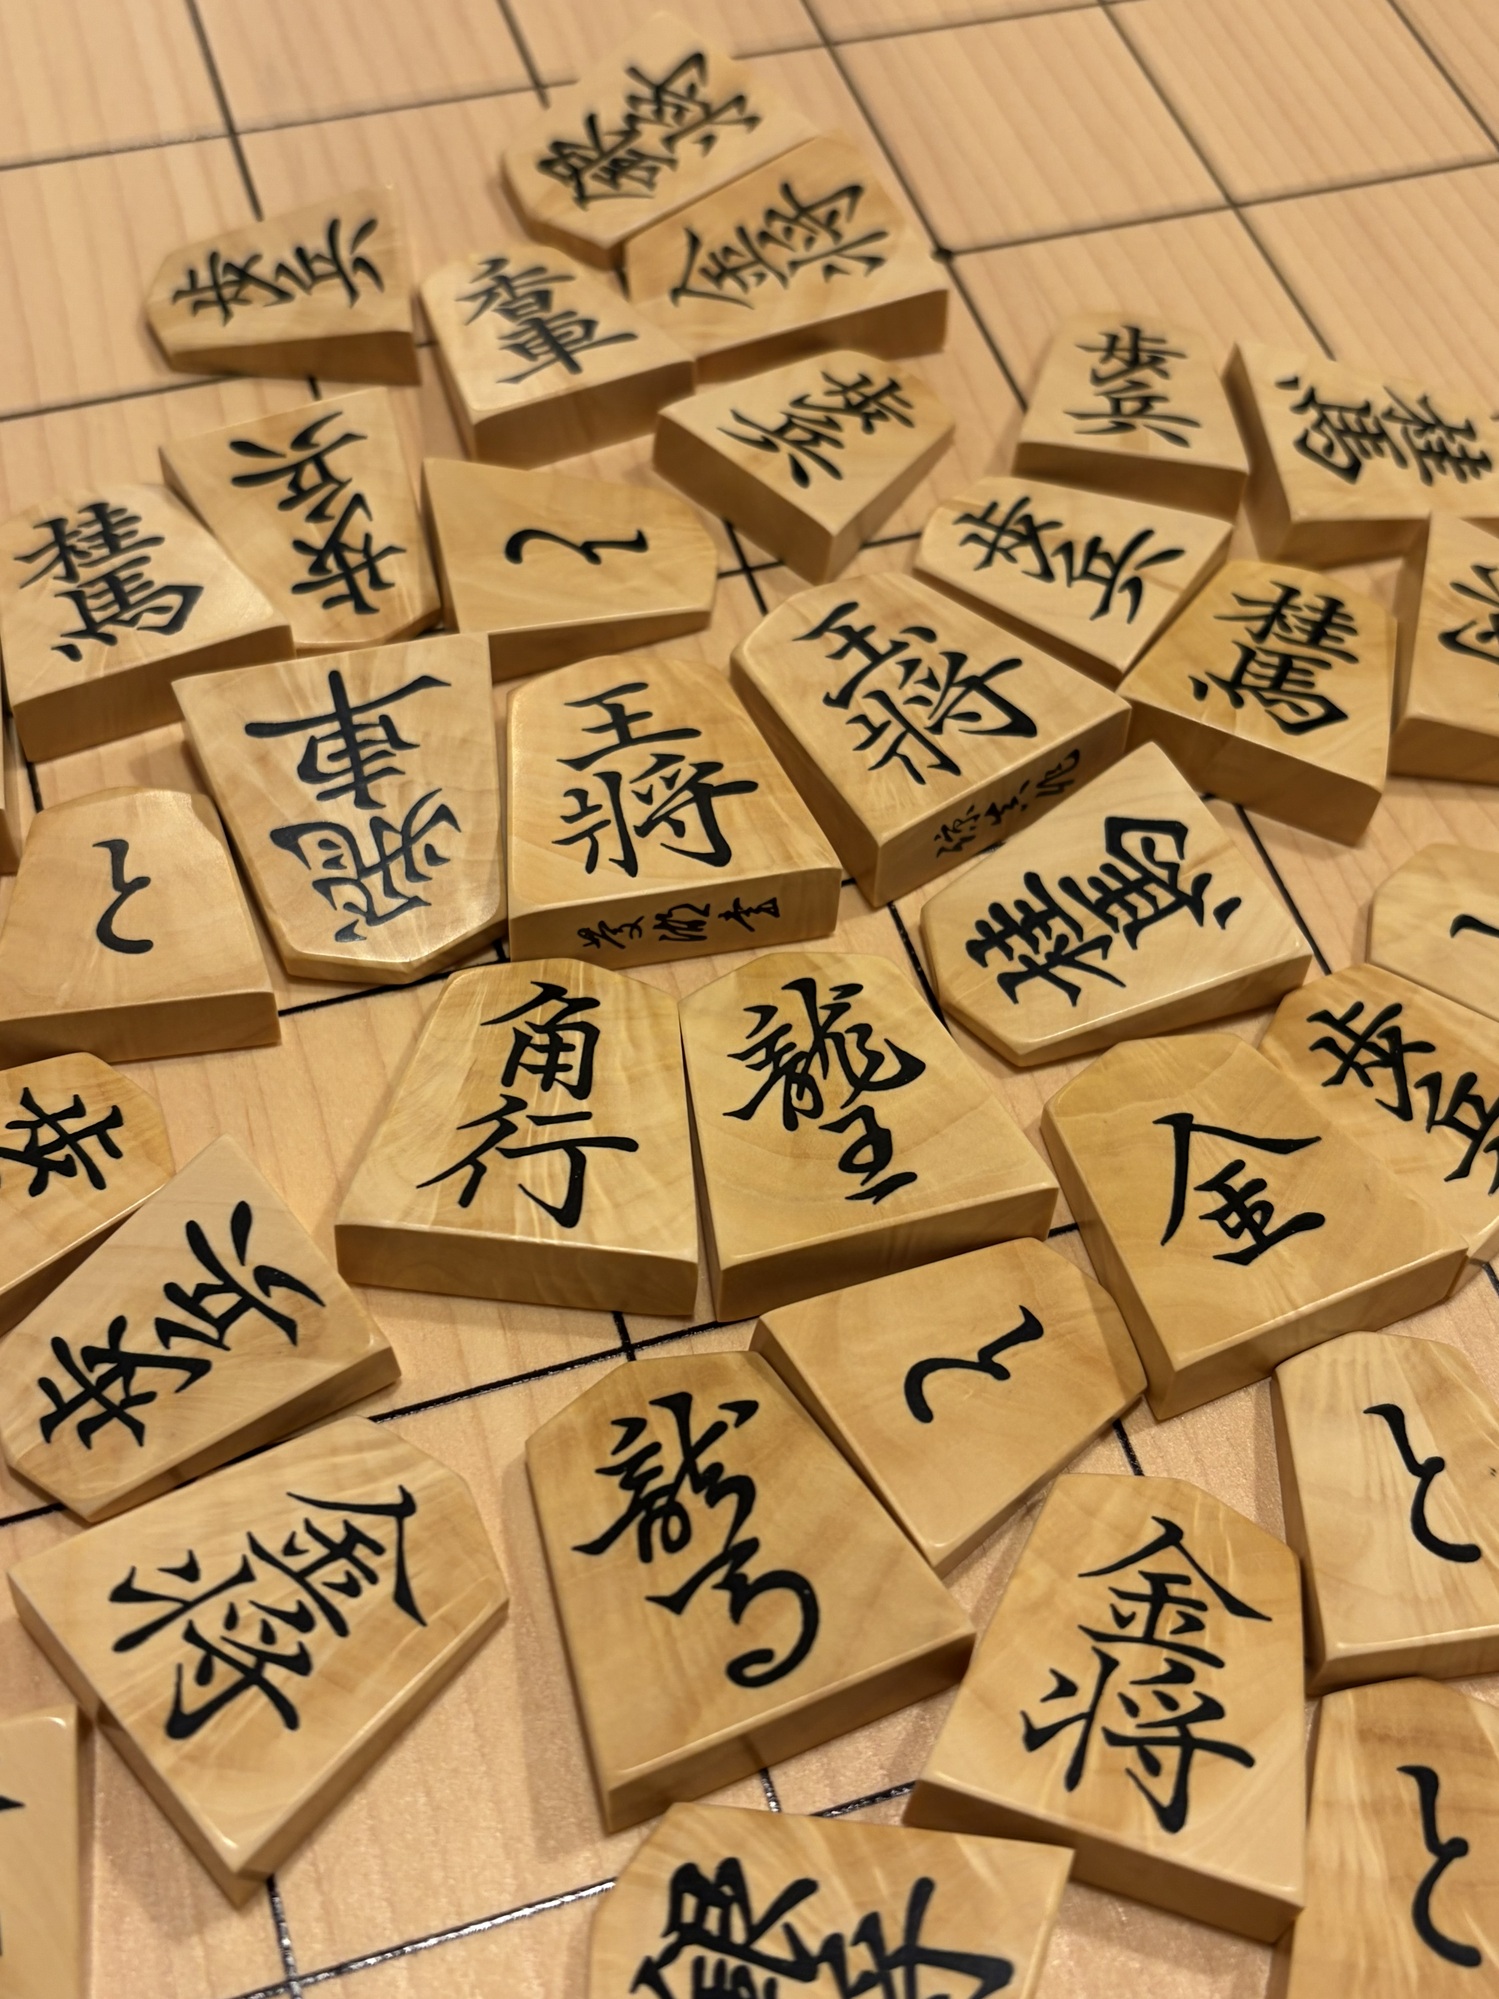 銀将
金将
歩兵
香車
歩兵
歩兵
桂馬
歩兵
桂馬
と
歩兵
桂馬
飛車
王将
玉将
桂馬
と
角行
龍王
歩兵
金
歩
歩兵
と
と
金将
龍馬
金将
と
銀